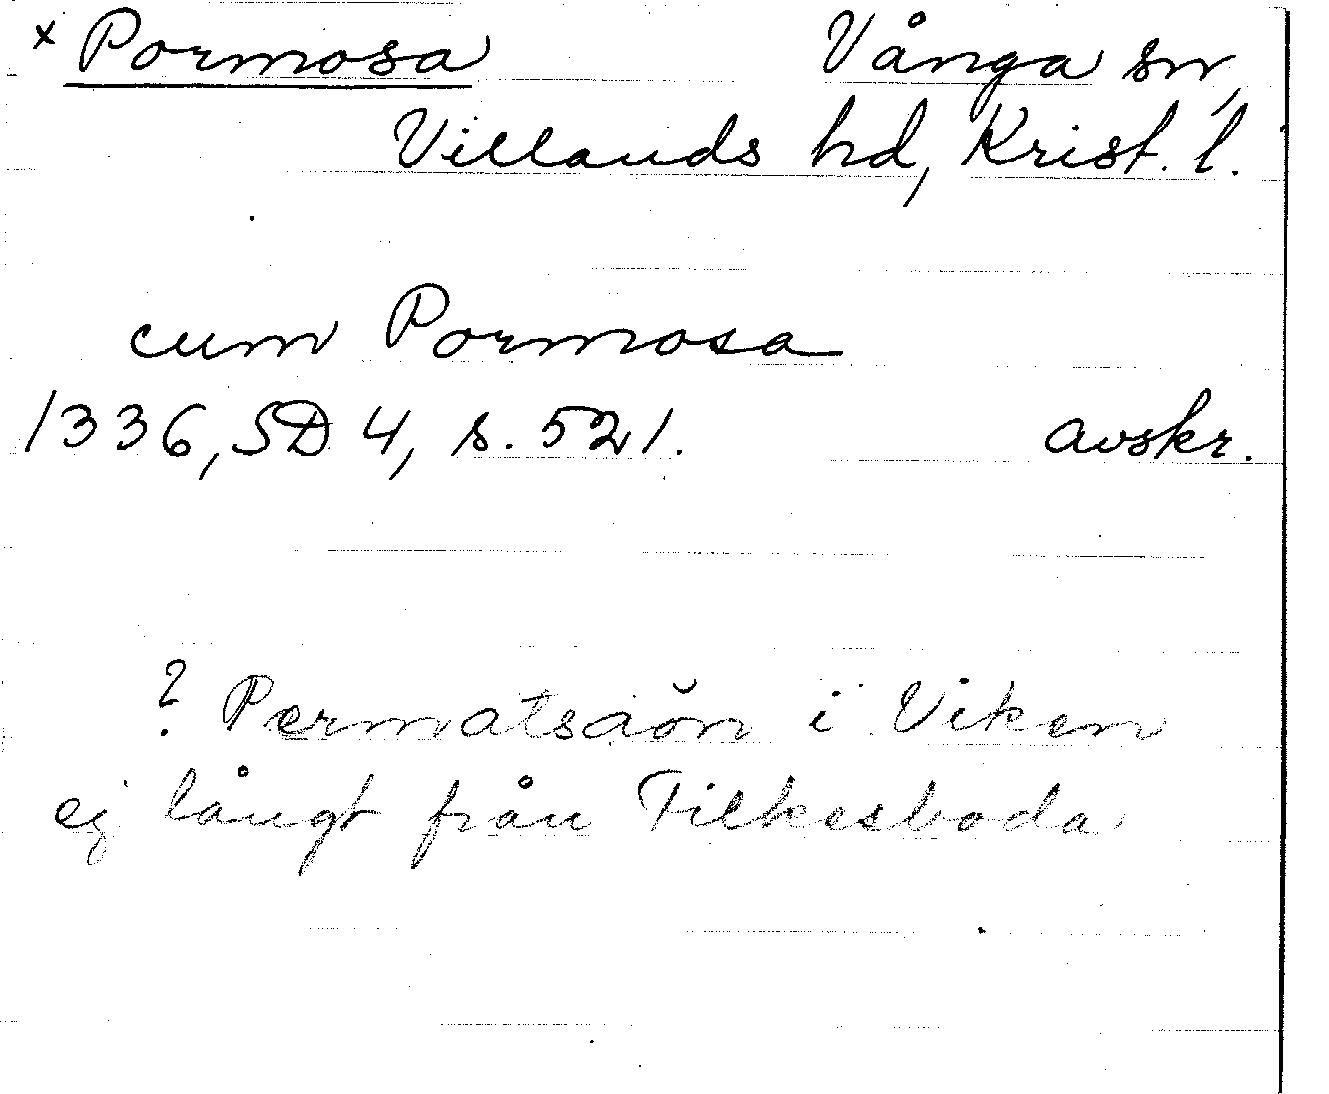 x Pormosa Vånga sn,
Villands hd, Krist. l.
cum Pormosa
1336, SD 4, s. 521. avskr.
? Permatsaön i Viken
ej långt från Tilkesboda